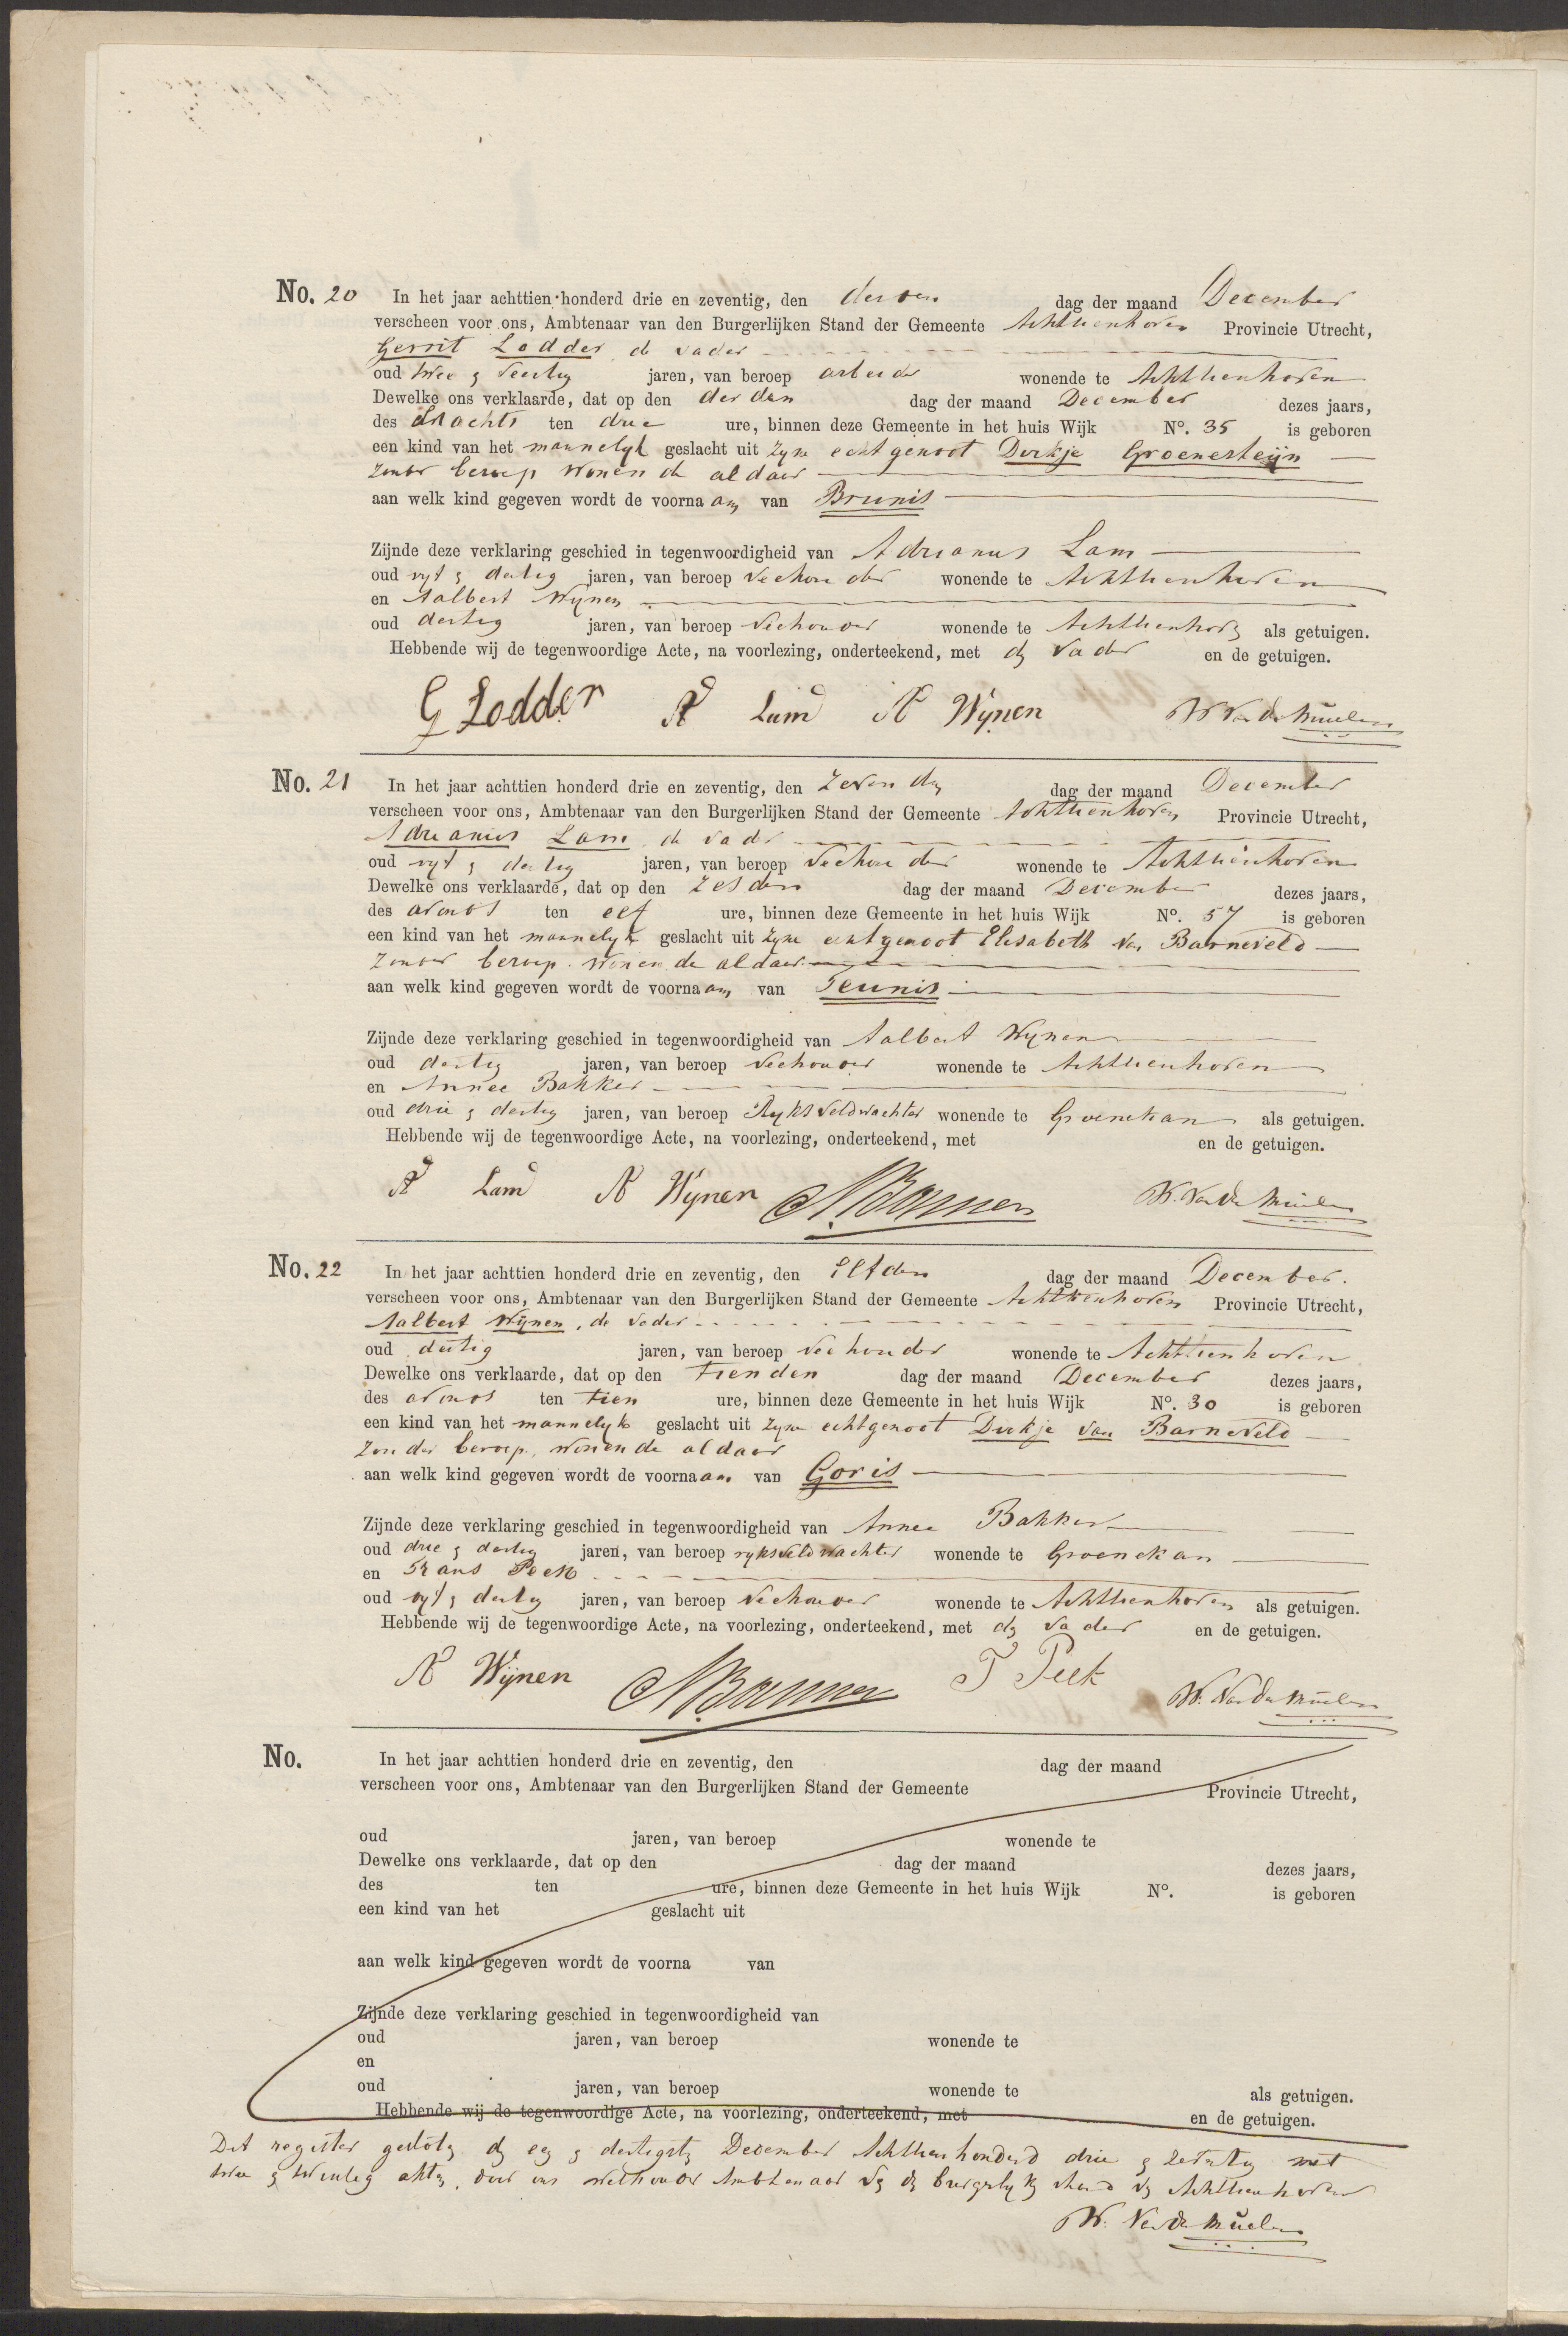 No. 20 In het jaar achttien honderd drie en zeventig, den derden dag der maand December
verscheen voor ons, Ambtenaar van den Burgerlijken Stand der Gemeente Achttienhoven Provincie Utrecht,
Gerrit Lodder de vader
oud twee & veertig jaren, van beroep arbeider wonende te Achttienhoven
Dewelke ons verklaarde, dat op den derden dag der maand December dezes jaars,
des Snachts ten drie ure, binnen deze Gemeente in het huis Wijk No. 35 is geboren
een kind van het mannelyk geslacht uit zyne echtgenoot Dirkje Groenesteijn
zonder beroep wonende aldaar
aan welk kind gegeven wordt de voornaam van Brunis
Zijnde deze verklaring geschied in tegenwoordigheid van Adrianus Lam
oud vyf & dertig jaren, van beroep veehouder wonende te Achttienhoven
en Aalbert Wynen
oud dertig jaren, van beroep veehouder wonende te Achttienhoven als getuigen.
Hebbende wij de tegenwoordige Acte, na voorlezing, onderteekend, met den vader en de getuigen.
G Lodder Ad Lam A Wijnen W. Van der Muelen
No. 21 In het jaar achttien honderd drie en zeventig, den zevenden dag der maand December
verscheen voor ons, Ambtenaar van den Burgerlijken Stand der Gemeente Achttienhoven Provincie Utrecht,
Adrianus Lam, de vader
oud vyf & dertig jaren, van beroep veehouder wonende te Achttienhoven
Dewelke ons verklaarde, dat op den zesden dag der maand December dezes jaars,
des avonds ten elf ure, binnen deze Gemeente in het huis Wijk No. 57 is geboren
een kind van het mannelyk geslacht uit zyne echtgenoot Elisabeth van Barneveld
zonder beroep. wonende aldaar
aan welk kind gegeven wordt de voornaam van Teunis
Zijnde deze verklaring geschied in tegenwoordigheid van Aalbert Wynen
oud dertig jaren, van beroep veehouder wonende te Achttienhoven
en Annee Bakker
oud drie & dertig jaren, van beroep Ryksveldwachter wonende te Groenekan als getuigen.
Hebbende wij de tegenwoordige Acte, na voorlezing, onderteekend, met en de getuigen.
Ad Lam A Wijnen W. Van der Muelen
No. 22 In het jaar achttien honderd drie en zeventig, den elfden dag der maand December.
verscheen voor ons, Ambtenaar van den Burgerlijken Stand der Gemeente Achttienhoven Provincie Utrecht,
Aalbert Wijnen, de vader
oud dertig jaren, van beroep veehouder wonende te Achttienhoven
Dewelke ons verklaarde, dat op den tienden dag der maand December dezes jaars,
des avonds ten tien ure, binnen deze Gemeente in het huis Wijk No. 30 is geboren
een kind van het mannelyk geslacht uit zyne echtgenoot Dirkje van Barneveld
zonder beroep, wonende aldaar
aan welk kind gegeven wordt de voornaam van Goris
Zijnde deze verklaring geschied in tegenwoordigheid van Annee Bakker
oud drie & dertig jaren, van beroep ryksveldwachter wonende te Groenekan
en Frans Peek
oud vyf & dertig jaren, van beroep veehouder wonende te Achttienhoven als getuigen.
Hebbende wij de tegenwoordige Acte, na voorlezing, onderteekend, met den vader en de getuigen.
A Wijnen F Peek W. Van der Muelen
No. In het jaar achttien honderd drie en zeventig, den dag der maand
verscheen voor ons, Ambtenaar van den Burgerlijken Stand der Gemeente Provincie Utrecht,
oud jaren, van beroep wonende te
Dewelke ons verklaarde, dat op den dag der maand dezes jaars,
des ten ure, binnen deze Gemeente in het huis Wijk No. is geboren
een kind van het geslacht uit
aan welk kind gegeven wordt de voorna van
Zijnde deze verklaring geschied in tegenwoordigheid van
oud jaren, van beroep wonende te
en
oud jaren, van beroep wonende te als getuigen.
Hebbende wij de tegenwoordige Acte, na voorlezing, onderteekend, met en de getuigen.
Dit register gesloten den een & dertigsten December Achttienhonderd drie & zeventig met
twee & twintig akten, door ons wethouder Ambtenaar van den burgerlyken stand van Achttienhoven
W. Van der Muelen